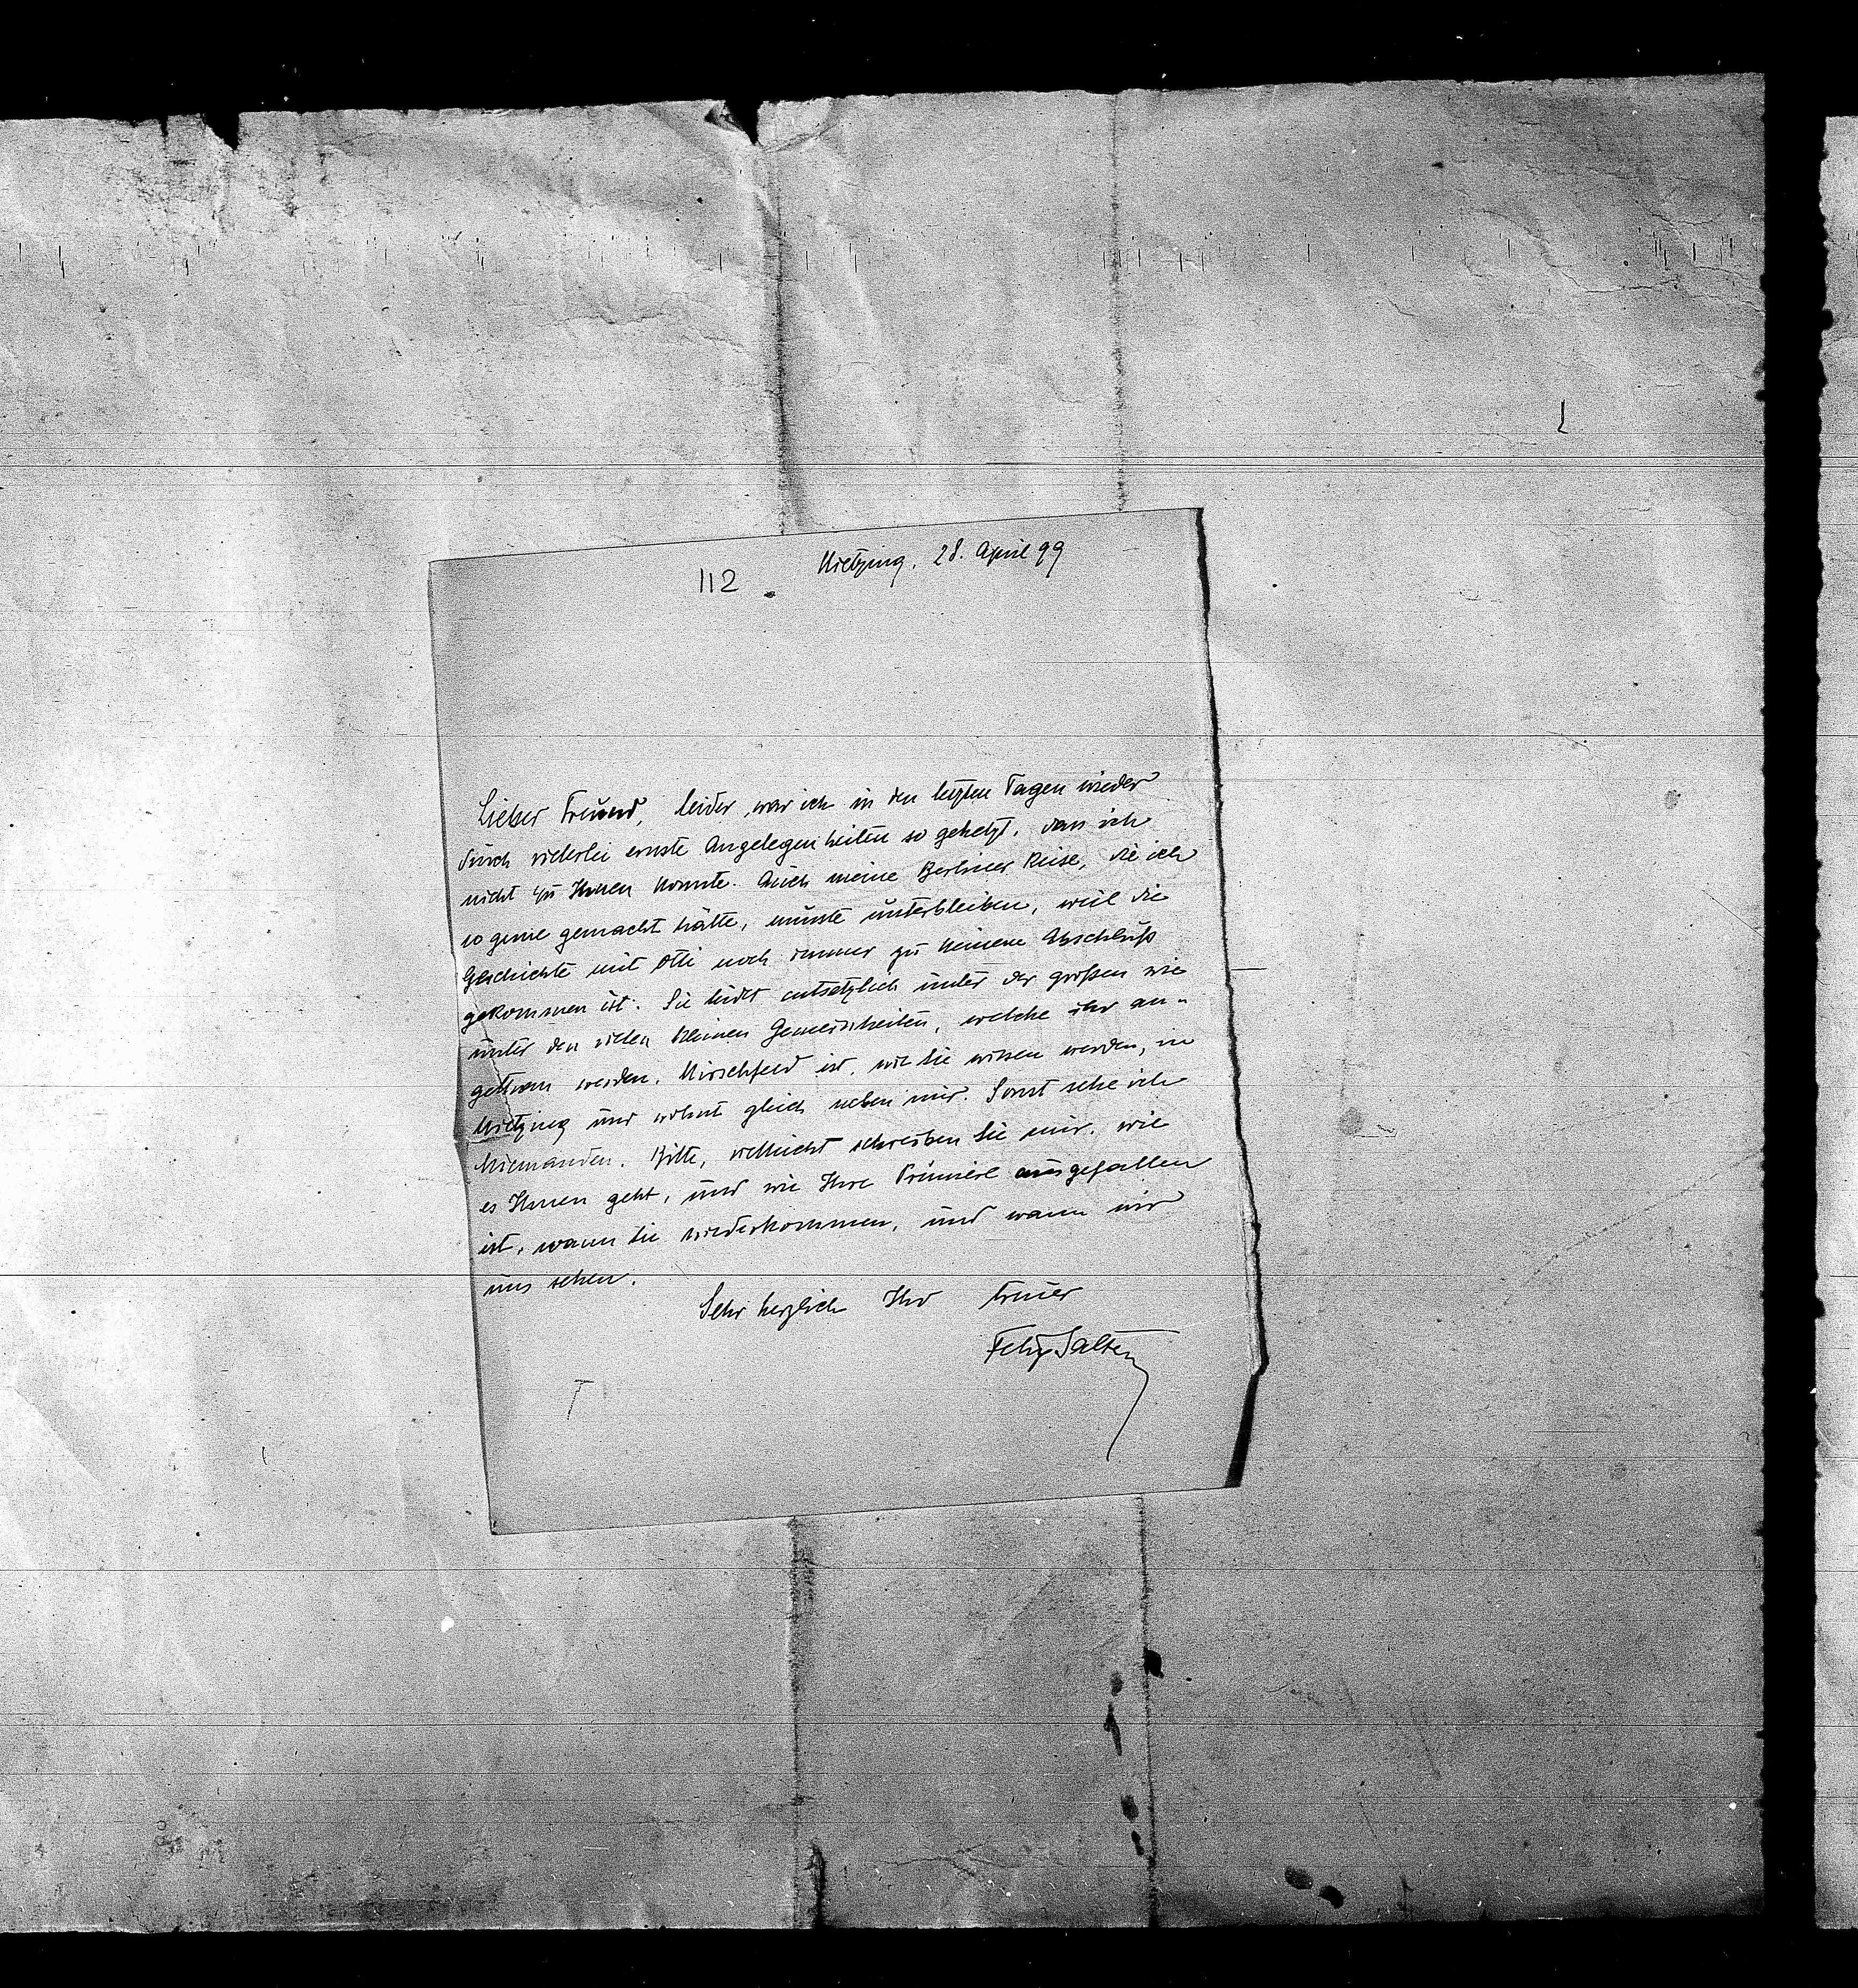 112
Hietzing, 28. April 99
Lieber Freund, leider war ich in den letzten Tagen wieder
durch vielerlei ernste Angelegenheiten so gehetzt, dass ich
nicht zu Ihnen konnte. Auch meine Berliner Reise, die ich
so gerne gemacht hätte, musste unterbleiben, weil die
Geschichte mit Otti noch immer zu keinem Abschluß
gekommen ist. Sie leidet entsetzlich unter der großen wie
unter den vielen kleinen Gemeinheiten, welche ihr an-
gethan werden. Hirschfeld ist, wie Sie wissen werden, in
Hietzing und wohnt gleich neben mir. Sonst sehe ich
Niemanden. Bitte, vielleicht schreiben Sie mir, wie
es Ihnen geht, und wie Ihre Première ausgefallen
ist, wann Sie wiederkommen, und wann wir
uns sehen.
Sehr herzlich Ihr treuer
Felix Salten